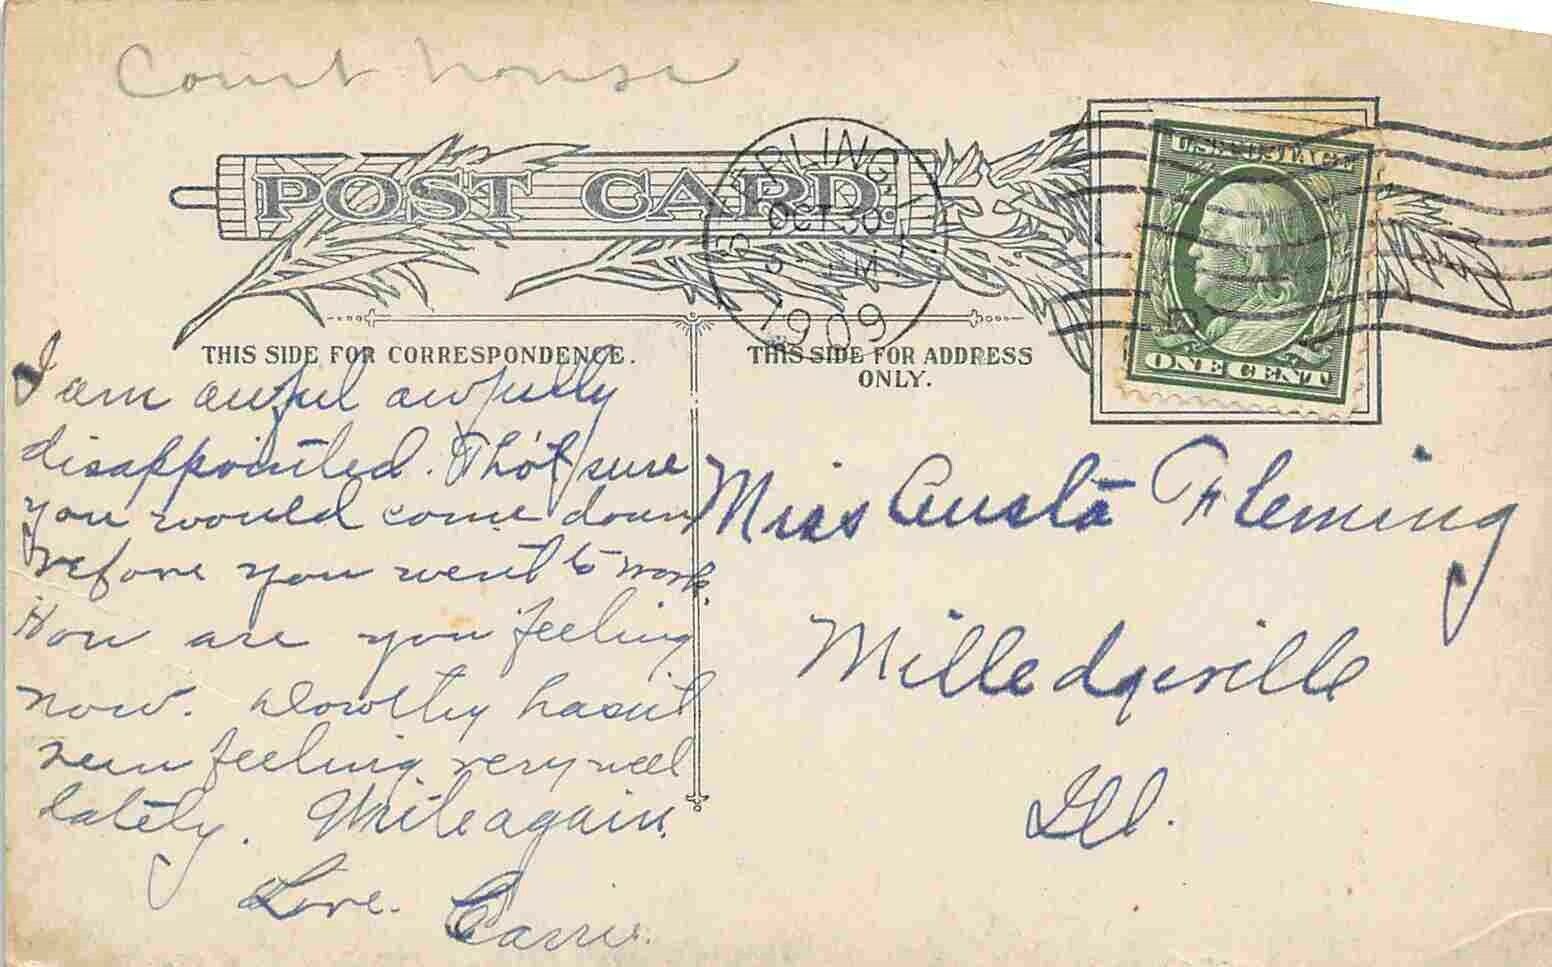 Court house
POST CARD
STERLING, ILL.
OCT 30
3 - PM
1909
U.S. POSTAGE
ONE CENT
THIS SIDE FOR CORRESPONDENCE.
THIS SIDE FOR ADDRESS
ONLY.
I am awful awfully
disappointed. Tho't sure
you would come down
before you went to work.
How are you feeling
now. Dorothy hasn't
been feeling very well
lately. Write again.
Love. Carrie.
Miss Austa Fleming
Milledgeville
Ill.